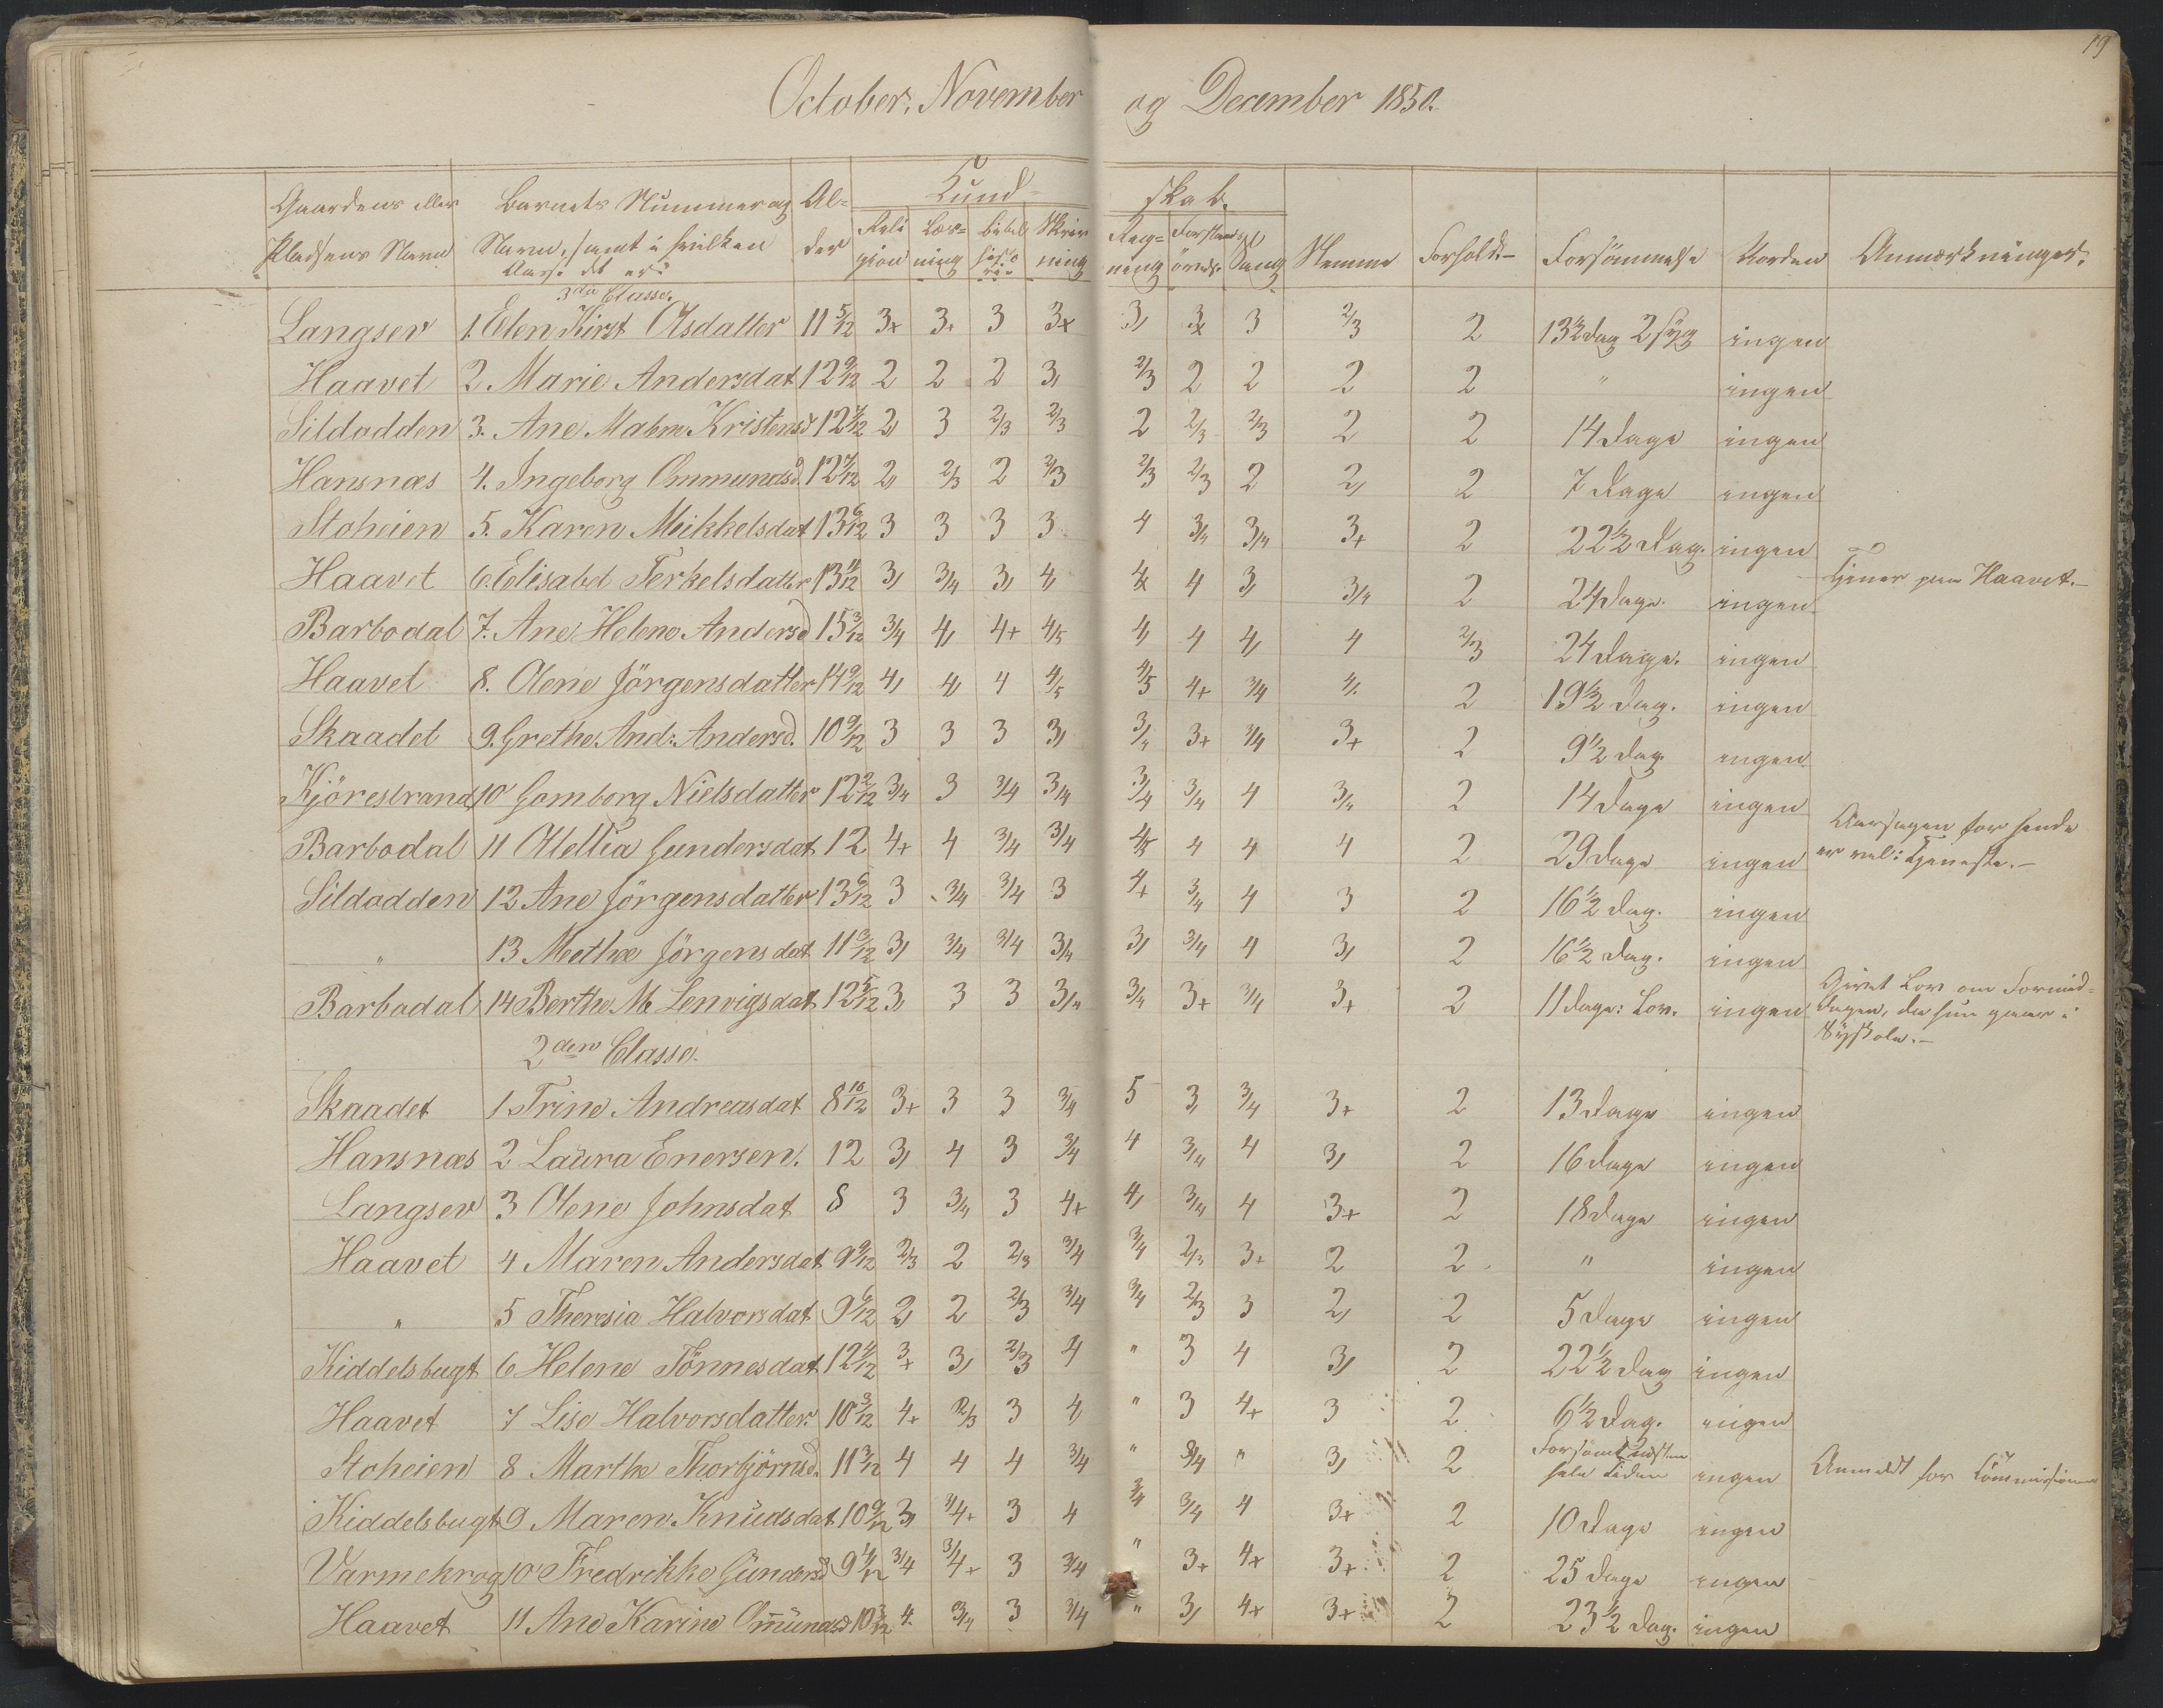 19
October, November og December 1850.
Gaardens eller Pladsens Navn | Barnets Nummer og Navn, samt i hvilken Classe det er | Al=der | Kund=skab. | Nemme | Forhold | Forsømmelse | Korden | Anmærkninger.
Reli gion | Læs=ning | Bibel histo rie | Skriv ning | Reg=ning | Forstands øvels. | Sang
3die Classe.
Langsev 1. Elen Kirst Olsdatter 11 5/12 3+ 3+ 3 3+ 3, 3+ 3 2/3 2 13 1/2 dag 2 syg ingen
Haavet 2 Marie Andersdat 12 9/12 2 2 2 3, 2/3 2 2 2 2 " ingen
Sildodden 3. Ane Malem Kristensd 12 4/12 2, 3 2/3 2/3 2 2/3 2/3 2 2 14 dage ingen
Hansnæs 4. Ingeborg Ommundsd. 12 7/12 2, 2/3 2 2/3 2/3 2/3 2 2, 2 7 dage ingen
Stoheien 5. Karen Meikkelsdat 13 6/12 3 3 3 3 4 3/4 3/4 3+ 2 22 1/2 dag. ingen
Haavet 6. Elisabet Terkelsdatter 13 11/12 3, 3/4 3, 4, 4+ 4 3, 3/4 2 24 dage. ingen Tjener paa Haavet.-
Barbodal 7. Ane Helene Andersd 15 3/12 3/4 4, 4+ 4/5 4, 4 4, 4 2/3 24 dage. ingen
Haavet 8. Olene Jörgensdatter 14 9/12 4, 4, 4 4/5 4/5 4+ 3/4 4. 2 19 1/2 dag. ingen
Skaadet 9. Grethe And: Andersd. 10 9/12 3 3 3 3, 3/4 3+ 3/4 3+ 2 9 1/2 dag ingen
Kjöresbrand 10 Gomborg Nielsdatter 12 2/12 3/4 3 3/4 3/4 3/4 3/4 4 3/4 2 14 dage ingen
Barbodal 11 Olellia Gundersdat 12 4+ 4 3/4 3/4 4/5 4 4 4 2 29 dage ingen Aarsagen for hende
er vel: Tjeneste.-
Sildodden 12 Ane Jörgensdatter 13 6/12 3 3/4 3/4 3 4+ 3/4 4 3 2 16 1/2 dag. ingen
" 13 Methe Jörgensdat 11 3/12 3, 3/4 3/4 3/4 3, 3/4 4 3, 2 16 1/2 dag. ingen
Barbodal 14 Berthe M Lenvigsdat 12 5/12 3, 3 3 3/4 3/4 3+ 3/4 3+ 2 11 dage: Lov. ingen Givet Lov om Formid=
dagen, da hun gaar i
Syskole.-
2den Classe.
Skaadet 1 Trine Andreasdat 8 10/12 3+ 3 3 3/4 5 3, 3/4 3+ 2 13 dage ingen
Hansnæs 2 Laura Enersen. 12 3, 4 3 3/4 4 3/4 4 3, 2 16 dage ingen
Langsev 3 Olene Johnsdat 8 3 3/4 3 4+ 4, 3/4 4 3+ 2 18 dage ingen
Haavet 4 Maren Andersdat 9 9/12 2/3 2 2/3 3/4 3/4 2/3 3+ 2 2 " ingen
" 5 Theresia Halvorsdat 9 6/12 2, 2 2/3 3/4 3/4 2/3 3 2, 2 5 dage ingen
Kiddelsbugt 6 Helene Tönnesdat 12 4/12 3+ 3, 2/3 4 " 3 4 3, 2 22 1/2 dag ingen
Haavet 7 Lise Halvorsdatter. 10 3/12 4+ 2/3 3 4, " 3 4+ 3 2 6 1/2 dag. ingen
Stoheien 8 Marthe Thorbjörnsd. 11 3/12 4 4 4 3/4 " 3/4 " 3, 2 Forsømt næsten
hele Tiden ingen Anmeldt for Commissionen
Kiddelsbugt 9 Maren Knudsdat 10 9/12 3, 3/4+ 3 4 3/4 3/4 4 3+ 2 10 dage ingen
Varmekrog 10 Fredrikke Gundersd 9 4/12 3/4 3/4+ 3 3/4 " 3+ 4+ 3+ 2 25 dage ingen
Haavet 11 Ane Karine Ommundsd 10 3/12 4 3/4 3 3/4 " 3, 4+ 3+ 2 23 1/2 dag. ingen